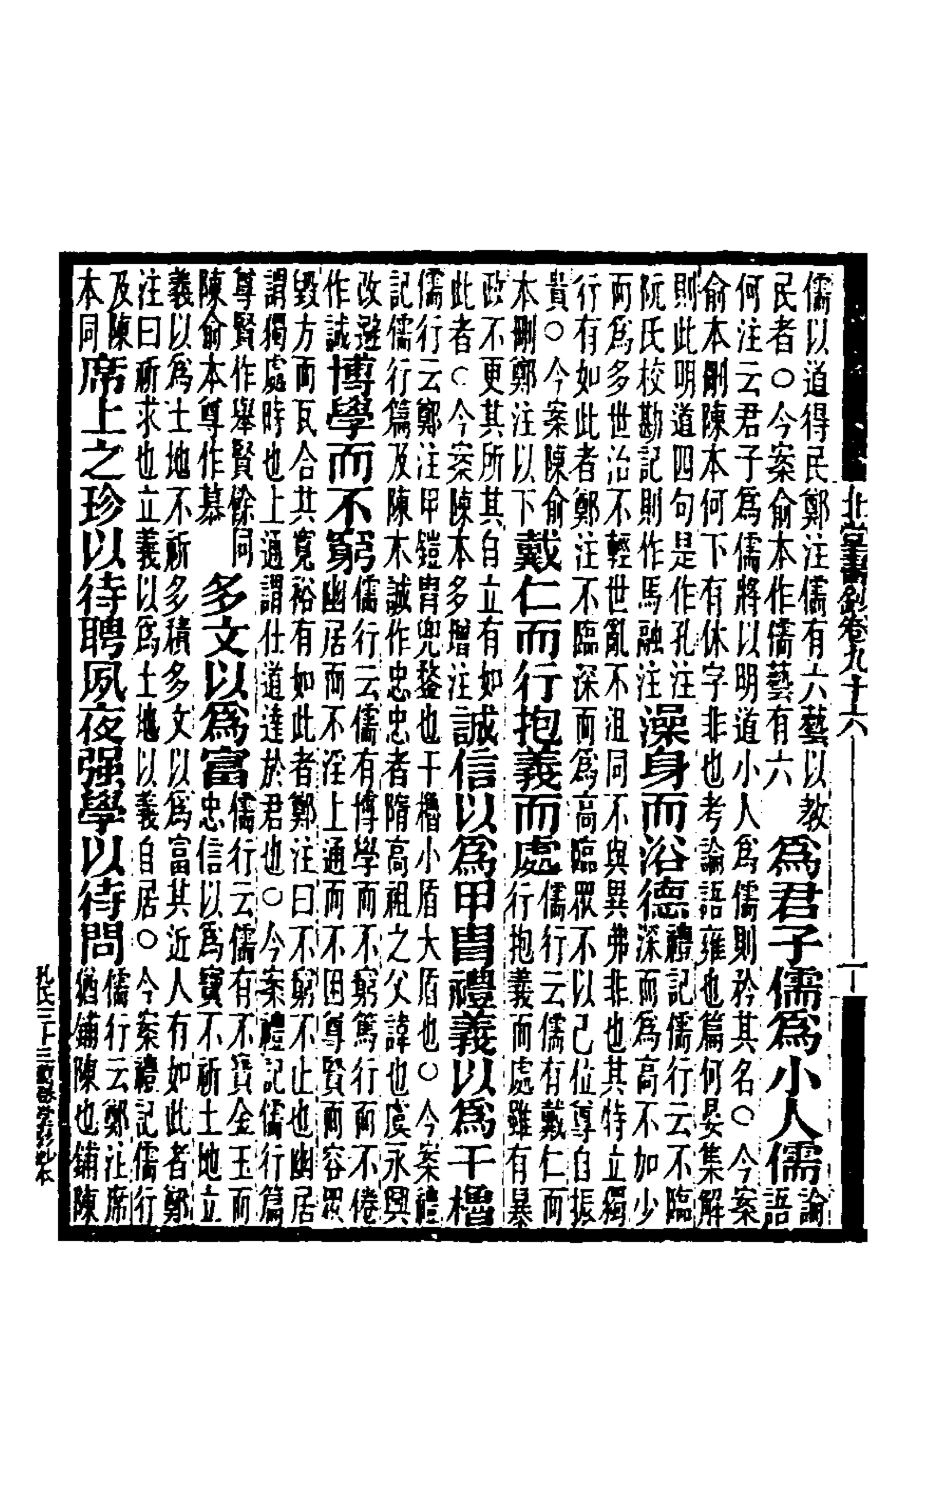 北堂書鈔卷九十六
儒以道得民鄭注儒有六藝以教
民者○今案俞本作儒藝有六
為君子儒為小人儒
論
語
何注云君子為儒將以明道小人為儒則矜其名○今案
俞本刪陳本何下有休字非也考論語雍也篇何晏集解
則此明道四句是作孔注
阮氏校勘記則作馬融注
澡身而浴德
禮記儒行云不臨
深而為高不加少
而為多世治不輕世亂不沮同不與異弗非也其特立獨
行有如此者鄭注不臨深而為高臨眾不以己位尊自振
貴○今案陳俞
本刪鄭注以下
戴仁而行抱義而處
儒行云儒有戴仁而
行抱義而處雖有暴
政不更其所其自立有如
此者○今案陳本多增注
誠信以為甲冑禮義以為干櫓
儒行云鄭注甲鎧冑兜鍪也干櫓小盾大盾也○今案禮
記儒行篇及陳本誠作忠忠者隋高祖之父諱也虞永興
改避
作誠
博學而不窮
儒行云儒有博學而不窮篤行而不倦
幽居而不淫上通而不困尊賢而容眾
毀方而瓦合其寬裕有如此者鄭注曰不窮不止也幽居
謂獨處時也上通謂仕道達於君也○今案禮記儒行篇
尊賢作舉賢餘同
陳俞本尊作慕
多文以為富
儒行云儒有不寶金玉而
忠信以為寶不祈土地立
義以為土地不祈多積多文以為富其近人有如此者鄭
注曰祈求也立義以為土地以義自居○今案禮記儒行
及陳
本同
席上之珍以待聘夙夜强學以待問
儒行云鄭注席
猶鋪陳也鋪陳
孔氏三十三萬卷堂影鈔本